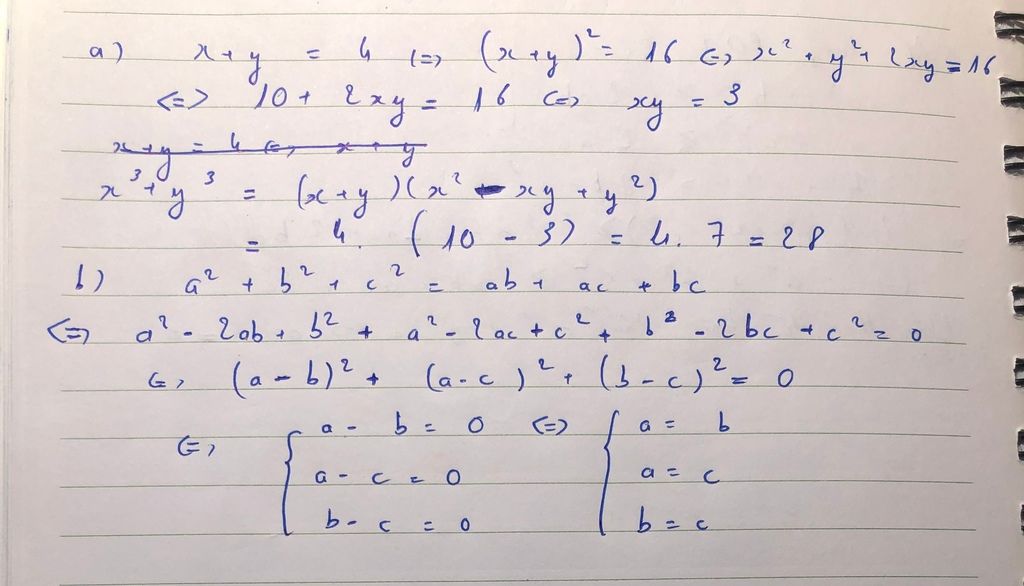 a) x+y = 4 <=> (x+y)² = 16 <=> x² + y² + 2xy = 16
<=> 10 + 2xy = 16 <=> xy = 3
x+y = 4 <=> x + y
x³ + y³ = (x+y)(x² - xy + y²)
= 4. (10 - 3) = 4. 7 = 28
b) a² + b² + c² = ab + ac + bc
<=> a² - 2ab + b² + a² - 2ac + c² + b² - 2bc + c² = 0
<=> (a - b)² + (a - c)² + (b - c)² = 0
<=> { a - b = 0 <=> { a = b
a - c = 0 a = c
b - c = 0 b = c